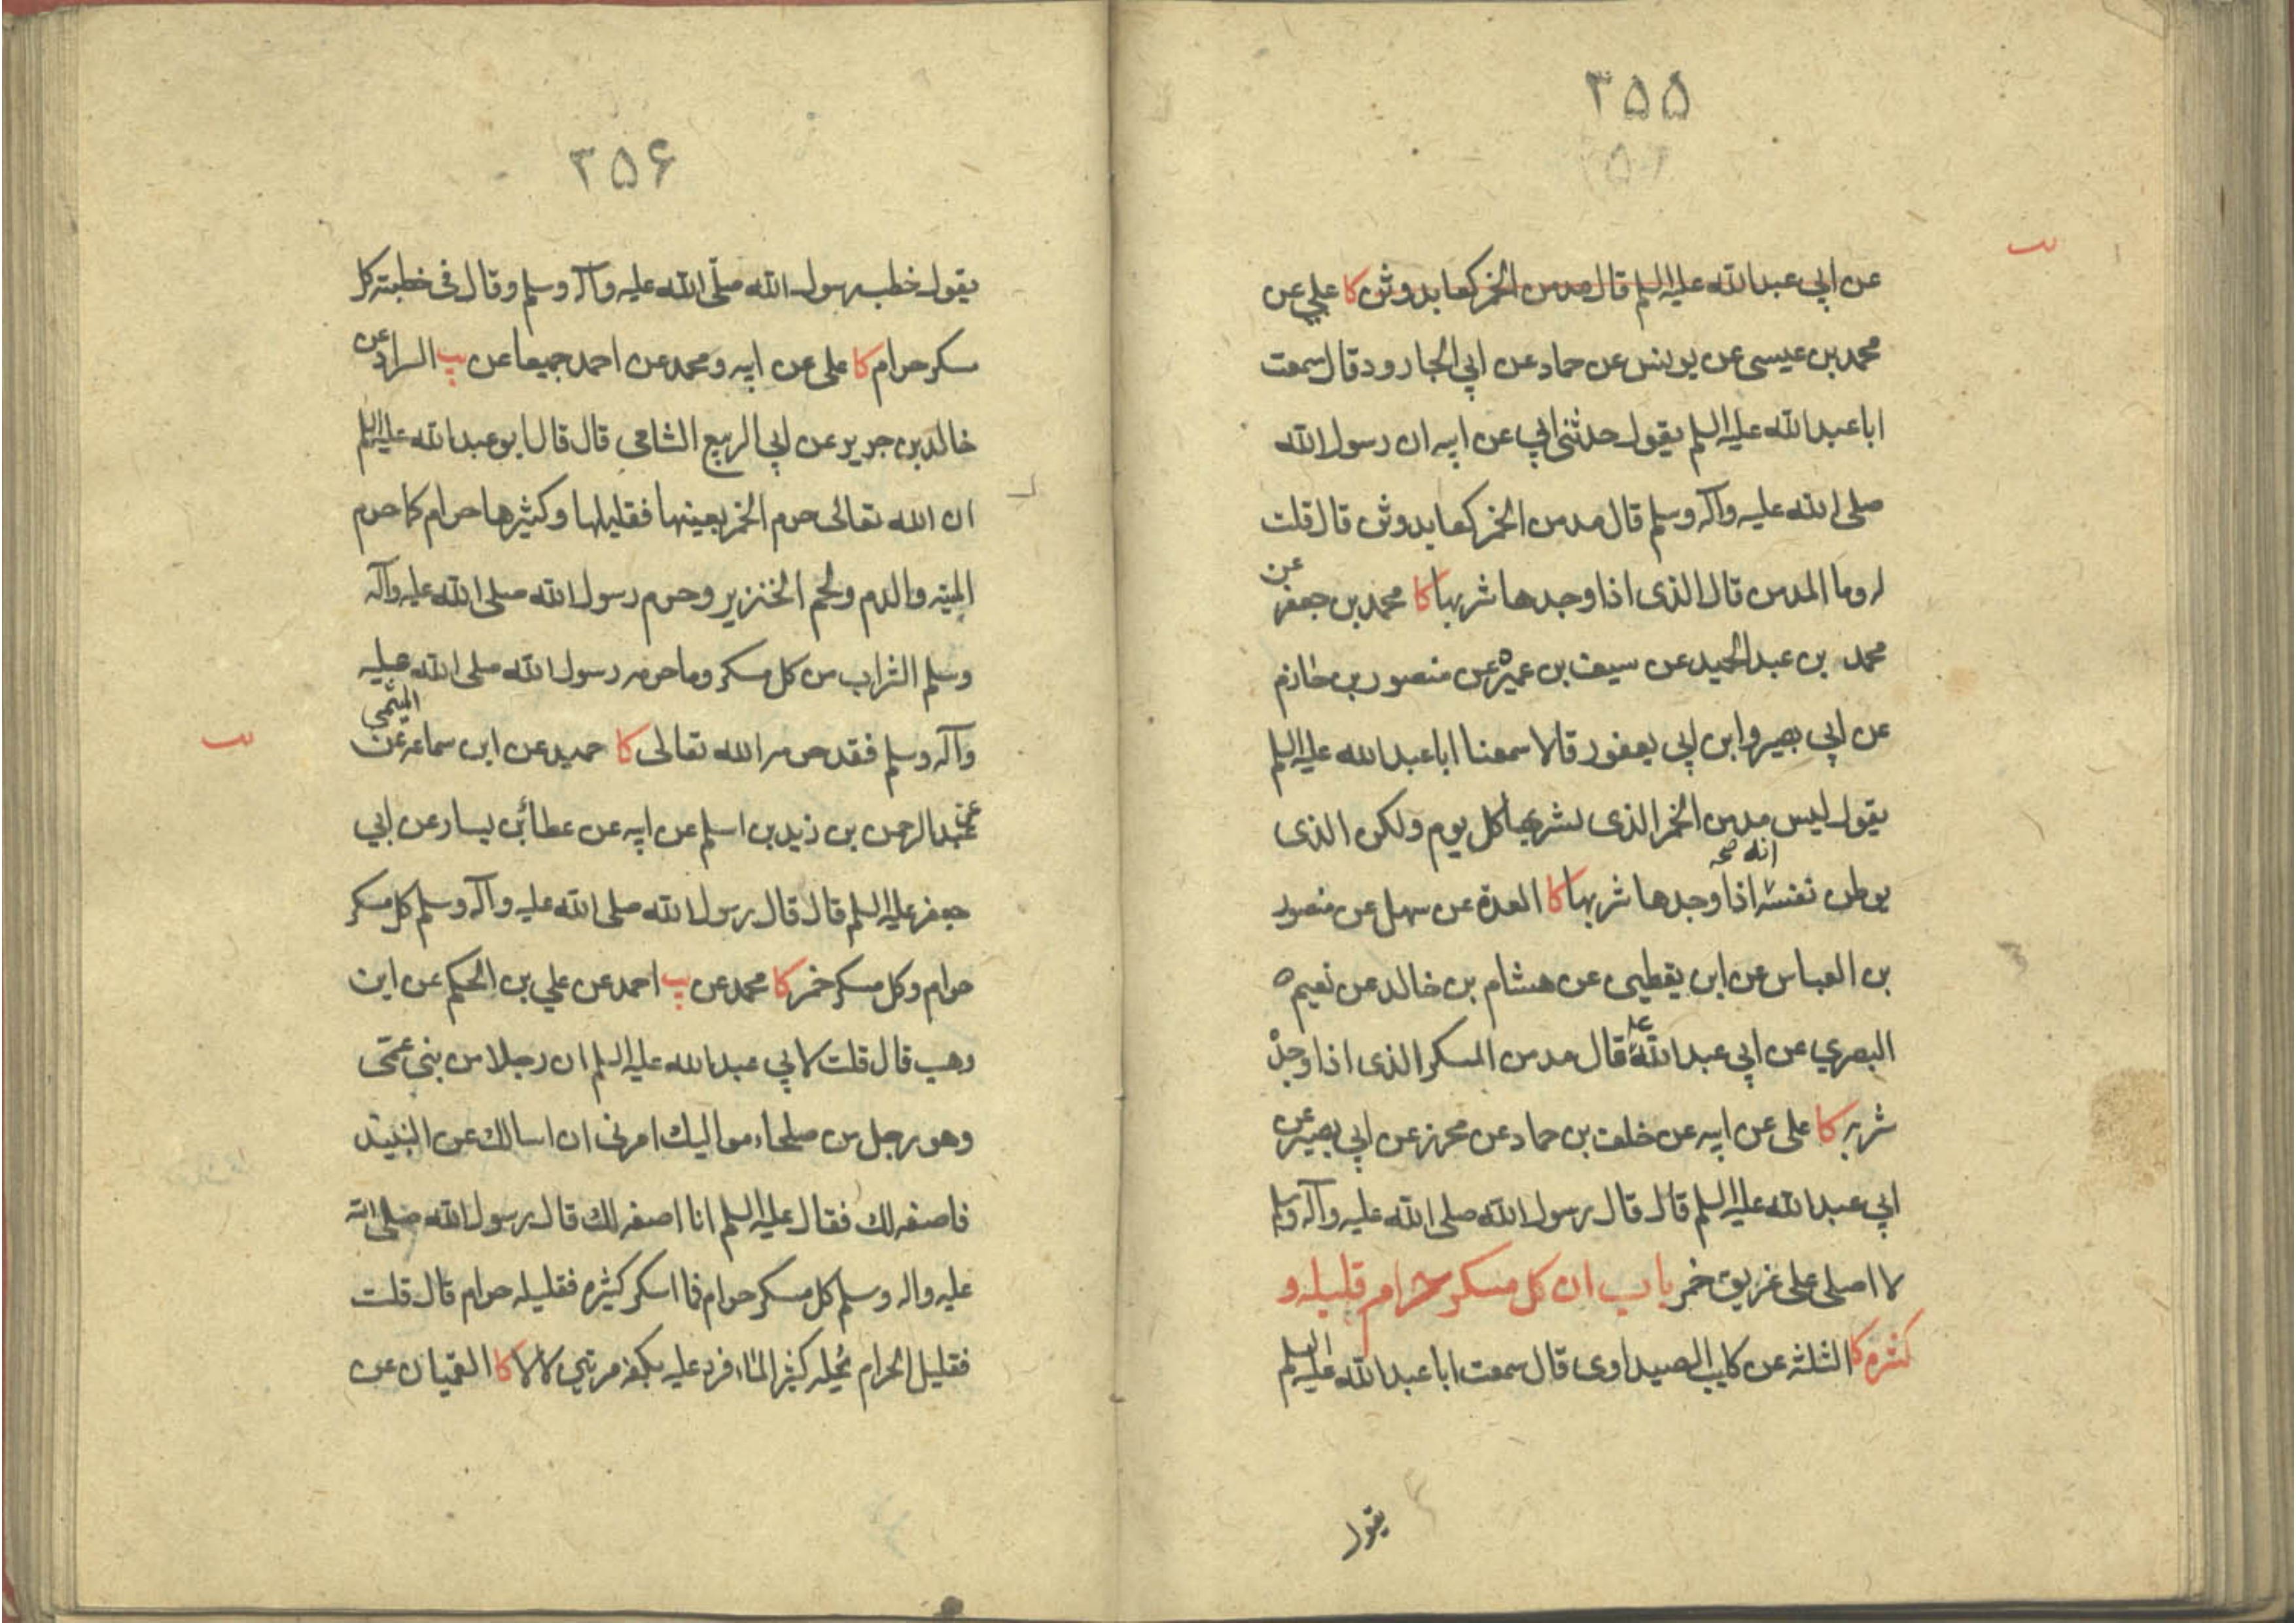 ۳۵۵
عن ابي عبد الله عليه السلم قال مدمن الخمر كعابد وثن كا علي عن
محمد بن عيسى عن يونس عن حماد عن ابي الجارود قال سمعت
ابا عبد الله عليه السلم يقول حدثني ابي عن ابيه ان رسول الله
صلى الله عليه وآله وسلم قال مدمن الخمر كعابد وثن قال قلت
له وما المدمن قال الذى اذا وجدها شربها كا محمد بن جعفر عن
محمد بن عبد الحميد عن سيف بن عميره عن منصور بن حازم
عن ابي بصير وابن ابي يعفور قالا سمعنا ابا عبد الله عليه السلم
يقول ليس مدمن الخمر الذى يشربها كل يوم ولكن الذى
يوطن نفسه انه اذا وجدها شربها كا العدة عن سهل عن منصور
بن العباس عن ابن يقطين عن هشام بن خالد عن نعيم
البصري عن ابي عبد الله ع قال مدمن المسكر الذى اذا وجده
شربه كا على عن ابيه عن خلف بن حماد عن محرز عن ابي بصير عن
ابي عبد الله عليه السلم قال قال رسول الله صلى الله عليه وآله وسلم
لا اصلى على غريق خمر باب ان كل مسكر حرام قليله و
كثره كا الثلثة عن كليب الصيداوى قال سمعت ابا عبد الله عليه السلم
يقول
۳۵۶
يقول خطب رسول الله صلّى الله عليه وآله وسلم وقال فى خطبته كل
مسكر حرام كا على عن ابيه ومحمد عن احمد جميعا عن يب السراد عن
خالد بن جرير عن ابي الربيع الشامي قال قال ابو عبد الله عليه السلم
ان الله تعالى حرم الخمر بعينها فقليلها وكثيرها حرام كما حرم
الميته والدم ولحم الخنزير وحرم رسول الله صلى الله عليه وآله
وسلم الشراب من كل مسكر وما حرمه رسول الله صلى الله عليه
وآله وسلم فقد حرمه الله تعالى كا حميد عن ابن سماعه عن الميثمي
عن عبد الرحمن بن زيد بن اسلم عن ابيه عن عطاء بن يسار عن ابي
جعفر عليه السلم قال قال رسول الله صلى الله عليه وآله وسلم كل مسكر
حرام وكل مسكر خمر كا محمد عن يب احمد عن علي بن الحكم عن ابن
وهب قال قلت لابي عبد الله عليه السلم ان رجلا من بني عمى
وهو رجل من صلحاء مواليك امرنى ان اسالك عن النبيذ
فاصفه لك فقال عليه السلم انا اصفه لك قال رسول الله صلى الله
عليه واله وسلم كل مسكر حرام فما اسكر كثيره فقليله حرام قال قلت
فقليل الحرام يحله كثير الماء فرد عليه بكفه مرتين لا لا كا القميان عن